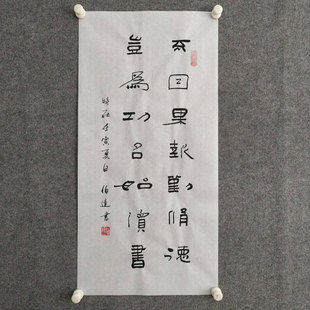 不因果報勤修德
豈為功名始讀書
時在壬寅夏日 伯書